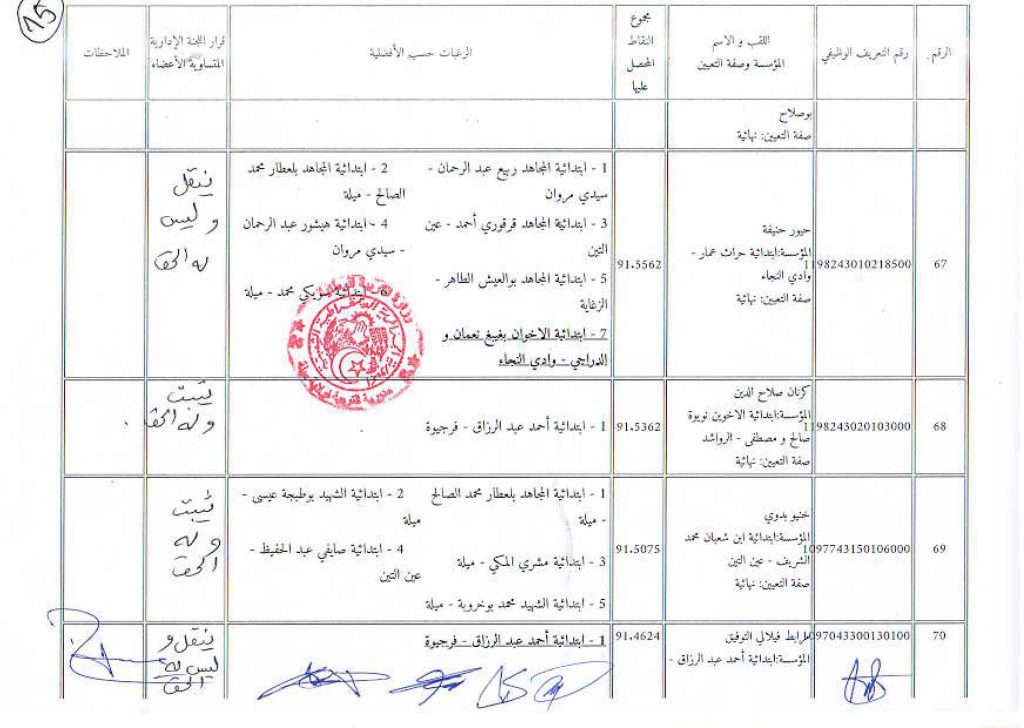 15
الرقم.
رقم التعريف الوظيفي
اللقب و الاسم
المؤسسة وصفة التعيين
مجموع
النقاط
المحصل
عليها
الرغبات حسب الأفضلية
قرار اللجنة الإدارية
المتساوية الأعضاء
الملاحظات
بوصلاح
صفة التعيين: نهائية
67
1198243010218500
حيور حنيفة
المؤسسة:ابتدائية حراث عمار -
وادي النجاء
صفة التعيين: نهائية
91.5562
1 - ابتدائية المجاهد ربيع عبد الرحمان -
سيدي مروان
2 - ابتدائية المجاهد بلعطار محمد
الصالح - ميلة
3 - ابتدائية المجاهد قرقوري أحمد - عين
التين
4 - ابتدائية هيشور عبد الرحمان
- سيدي مروان
5 - ابتدائية المجاهد بوالعيش الطاهر -
الزغاية
6 - ابتدائية سويكي محمد - ميلة
7 - ابتدائية الاخوان بغييغ نعمان و
الدراجي - وادي النجاء
ينقل
و ليس
له الحق
68
1198243020103000
كرنان صلاح الدين
المؤسسة:ابتدائية الاخوين نويوة
صالح و مصطفى - الرواشد
صفة التعيين: نهائية
91.5362
1 - ابتدائية أحمد عبد الرزاق - فرجيوة
يثبت
وله الحق
69
1097743150106000
خنيو بدوي
المؤسسة:ابتدائية ابن شعبان محمد
الشريف - عين التين
صفة التعيين: نهائية
91.5075
1 - ابتدائية المجاهد بلعطار محمد الصالح
- ميلة
2 - ابتدائية الشهيد بوطبجة عيسى -
ميلة
3 - ابتدائية مشري المكي - ميلة
4 - ابتدائية صايفي عبد الحفيظ -
عين التين
5 - ابتدائية الشهيد محمد بوخروبة - ميلة
يثبت
وله
الحق
70
097043300130100
مرابط فيلالي التوفيق
المؤسسة:ابتدائية أحمد عبد الرزاق -
91.4624
1 - ابتدائية أحمد عبد الرزاق - فرجيوة
ينقل و
ليس له
الحق